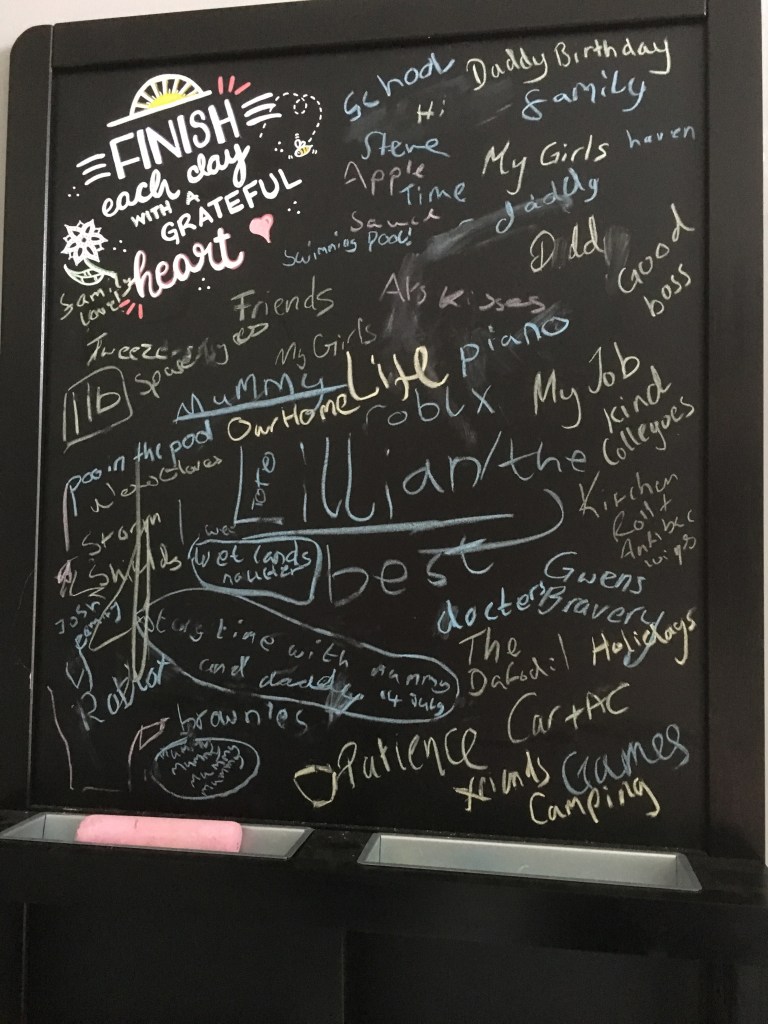 FINISH
each day
WITH A
GRATEFUL
heart
School
Daddy Birthday
Hi
family
Steve
My Girls
haven
Apple
Time
daddy
Swimming Pool!
Good
boss
family
Friends
Kisses
My Girls
piano
Mummy
Life
Our Home
roblx
My Job
Kind
Collegues
poo in the pool
Love
Lillian/the
best
Storm
Shields
wet lands
Kitchen
Roll +
Antibac
wips
Gwens
Bravery
docters
Josh
story time with
mummy
and daddy
14 July
The
Dafodil
Holidays
brownies
Car + AC
Patience
Games
Camping
mummy
mummy
mummy